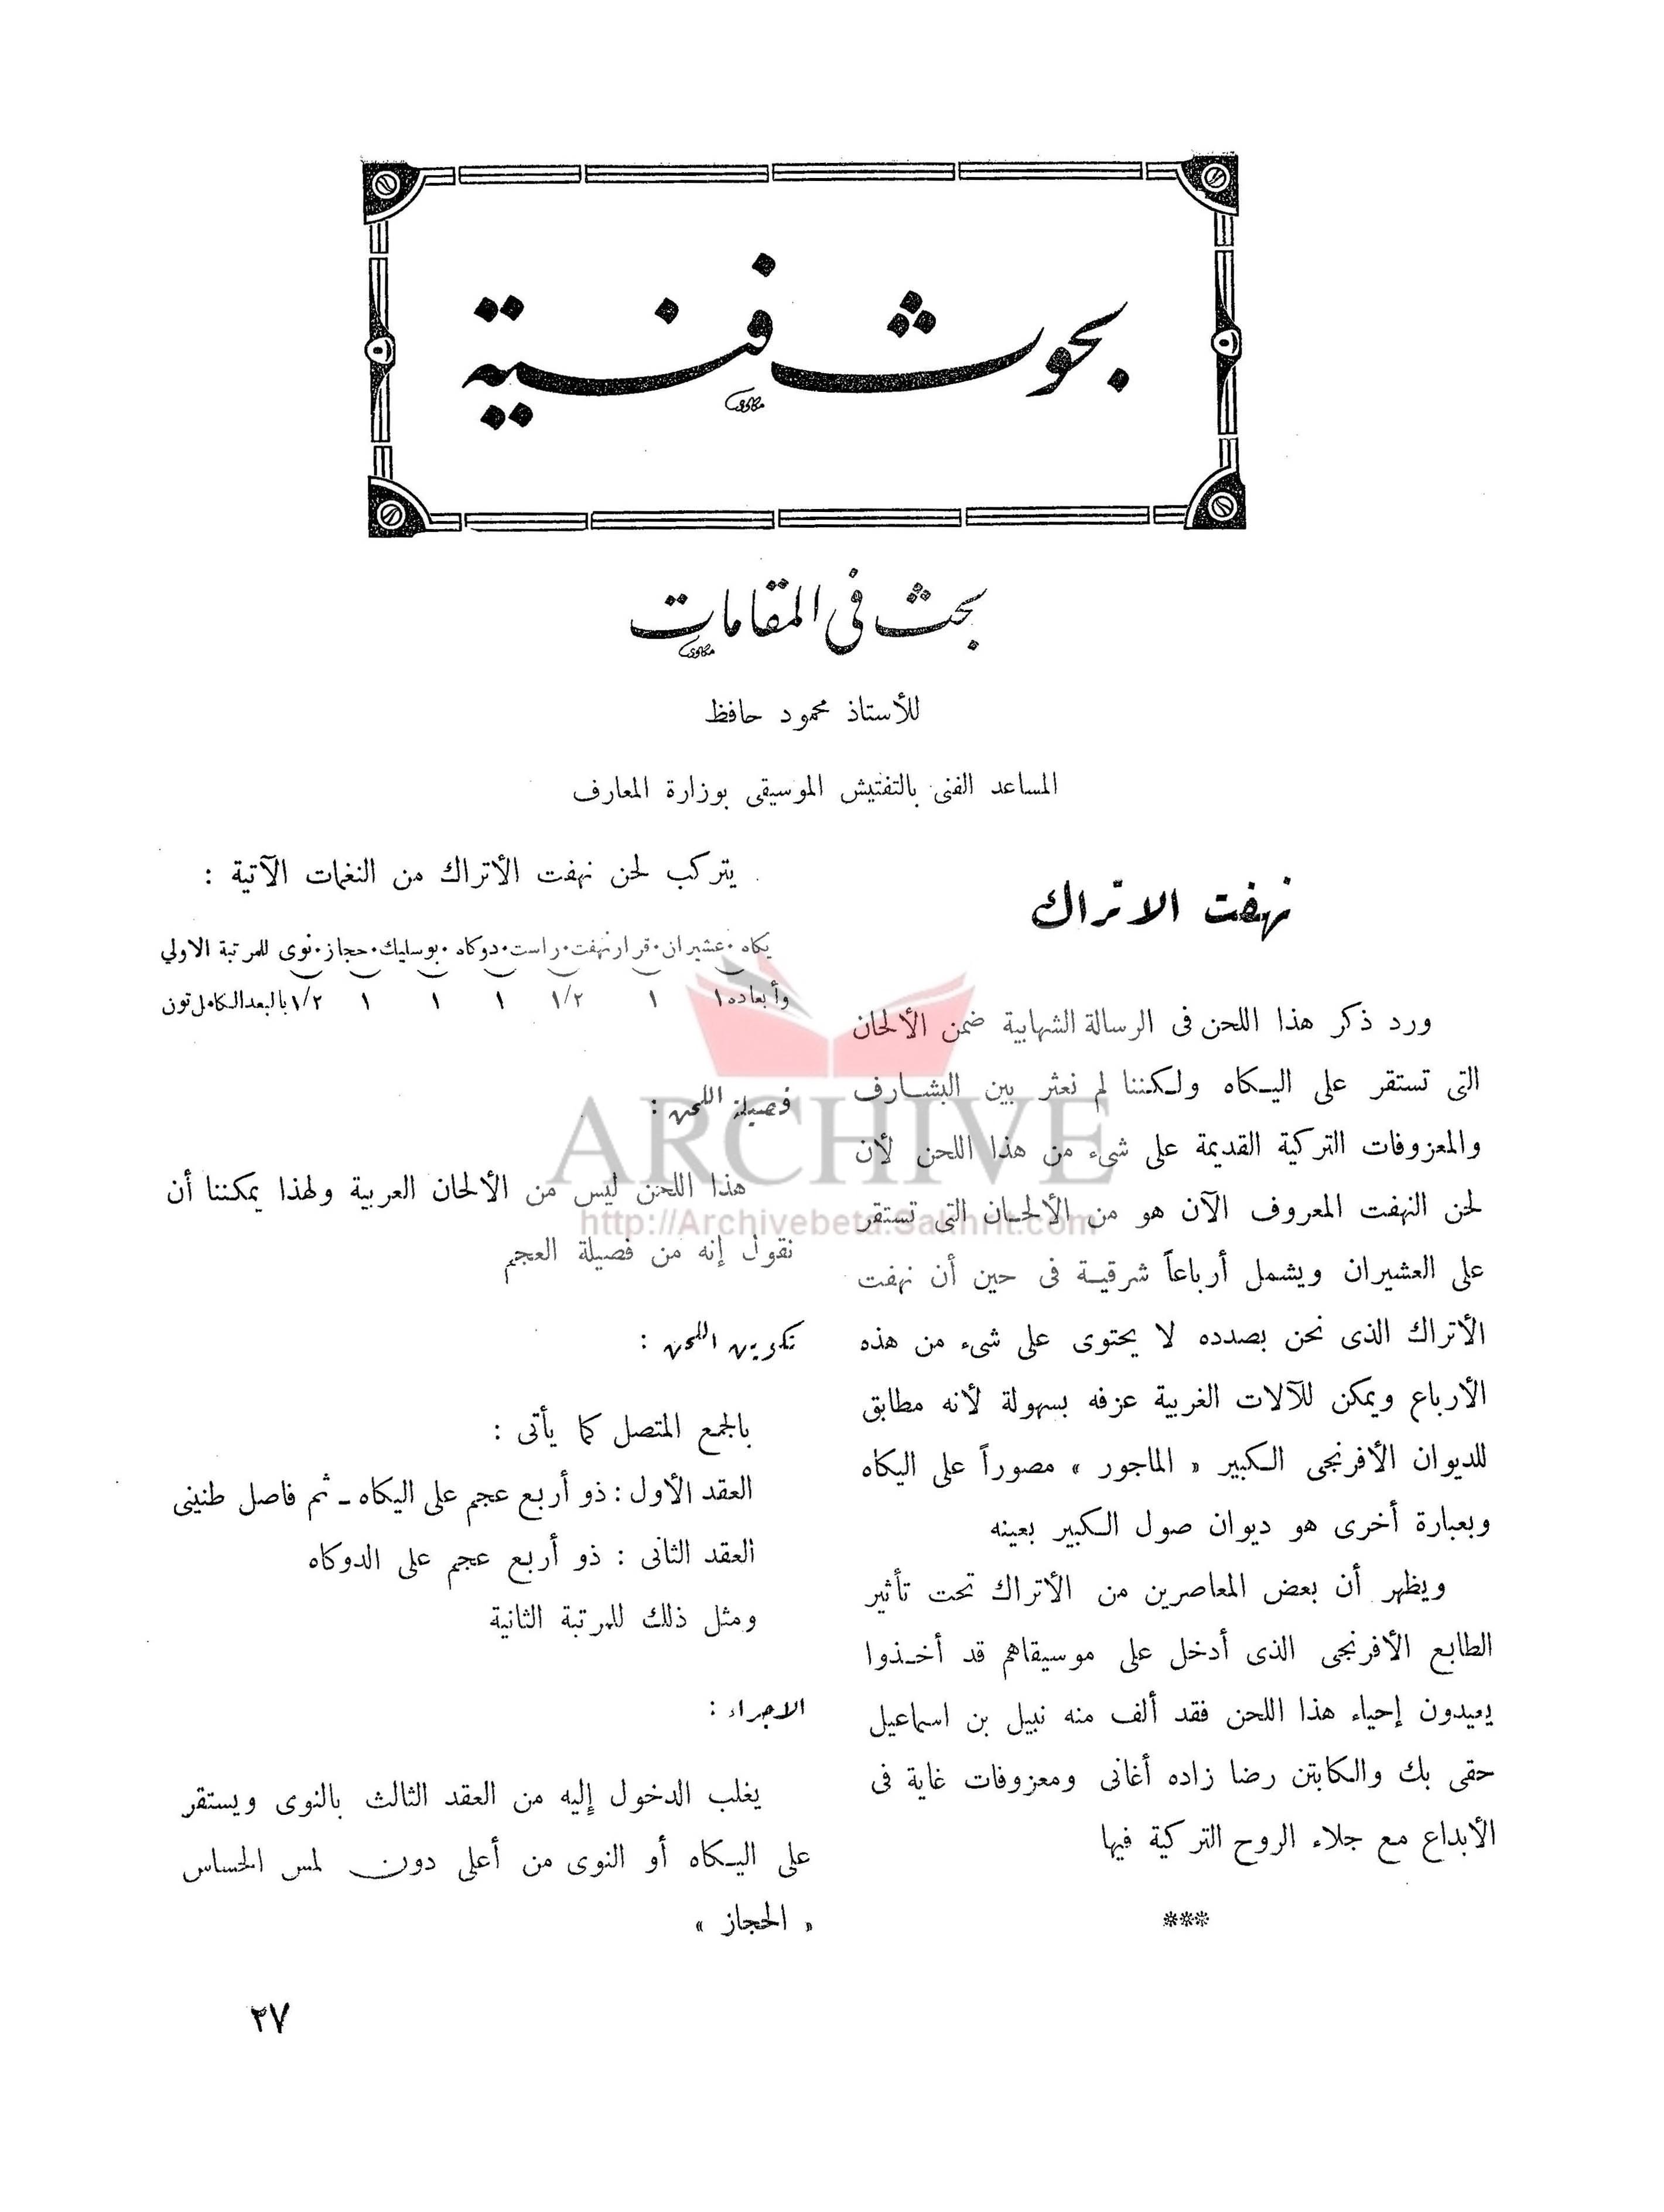 بحوث فنية
بحث فى المقامات
للأستاذ محمود حافظ
المساعد الفنى بالتفتيش الموسيقى بوزارة المعارف
نهفت الاتراك
ورد ذكر هذا اللحن فى الرسالة الشهابية ضمن الألحان
التى تستقر على اليكاه ولكننا لم نعثر بين البشارف
والمعزوفات التركية القديمة على شىء من هذا اللحن لأن
لحن النهفت المعروف الآن هو من الألحان التى تستقر
على العشيران ويشمل أرباعاً شرقية فى حين أن نهفت
الأتراك الذى نحن بصدده لا يحتوى على شىء من هذه
الأرباع ويمكن للآلات الغربية عزفه بسهولة لأنه مطابق
للديوان الأفرنجى الكبير « الماجور » مصوراً على اليكاه
وبعبارة أخرى هو ديوان صول الكبير بعينه
ويظهر أن بعض المعاصرين من الأتراك تحت تأثير
الطابع الأفرنجى الذى أدخل على موسيقاهم قد أخذوا
يعيدون إحياء هذا اللحن فقد ألف منه نبيل بن اسماعيل
حقى بك والكابتن رضا زاده أغانى ومعزوفات غاية فى
الأبداع مع جلاء الروح التركية فيها
***
يتركب لحن نهفت الأتراك من النغمات الآتية :
يكاه . عشيران . قرار نهفت . راست . دوكاه . بوسليك . حجاز . نوى للمرتبة الاولي
وأبعاده ١ ١ ١/٢ ١ ١ ١ ١/٢ بالبعد الكامل تون
فصيلة اللحن :
هذا اللحن ليس من الألحان العربية ولهذا يمكننا أن
نقول إنه من فصيلة العجم
تكوين اللحن :
بالجمع المتصل كما يأتى :
العقد الأول : ذو أربع عجم على اليكاه ـ ثم فاصل طنينى
العقد الثانى : ذو أربع عجم على الدوكاه
ومثل ذلك للمرتبة الثانية
الاجراء :
يغلب الدخول إليه من العقد الثالث بالنوى ويستقر
على اليكاه أو النوى من أعلى دون لمس الحساس
« الحجاز »
٢٧
ARCHIVE
http://Archivebeta.Sakhrit.com